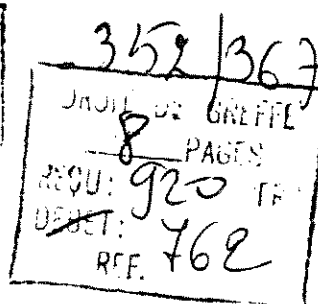 352/367
DROIT DE GREFFE
8 PAGES
REÇU: 920 FR
DEBET:
REF. 762